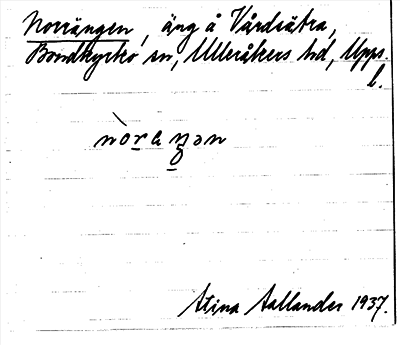 Norrängen, äng å Vårdsätra,
Bondkyrko sn, Ulleråkers hd, Upps.
l.
Stina Aallander 1937.